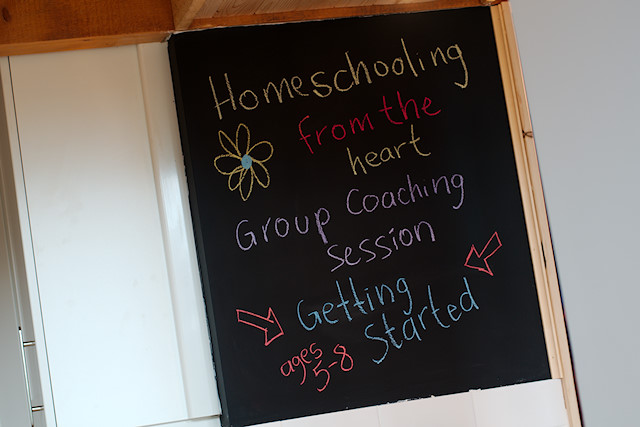 Homeschooling
from the
heart
Group Coaching
session
Getting
Started
ages
5-8